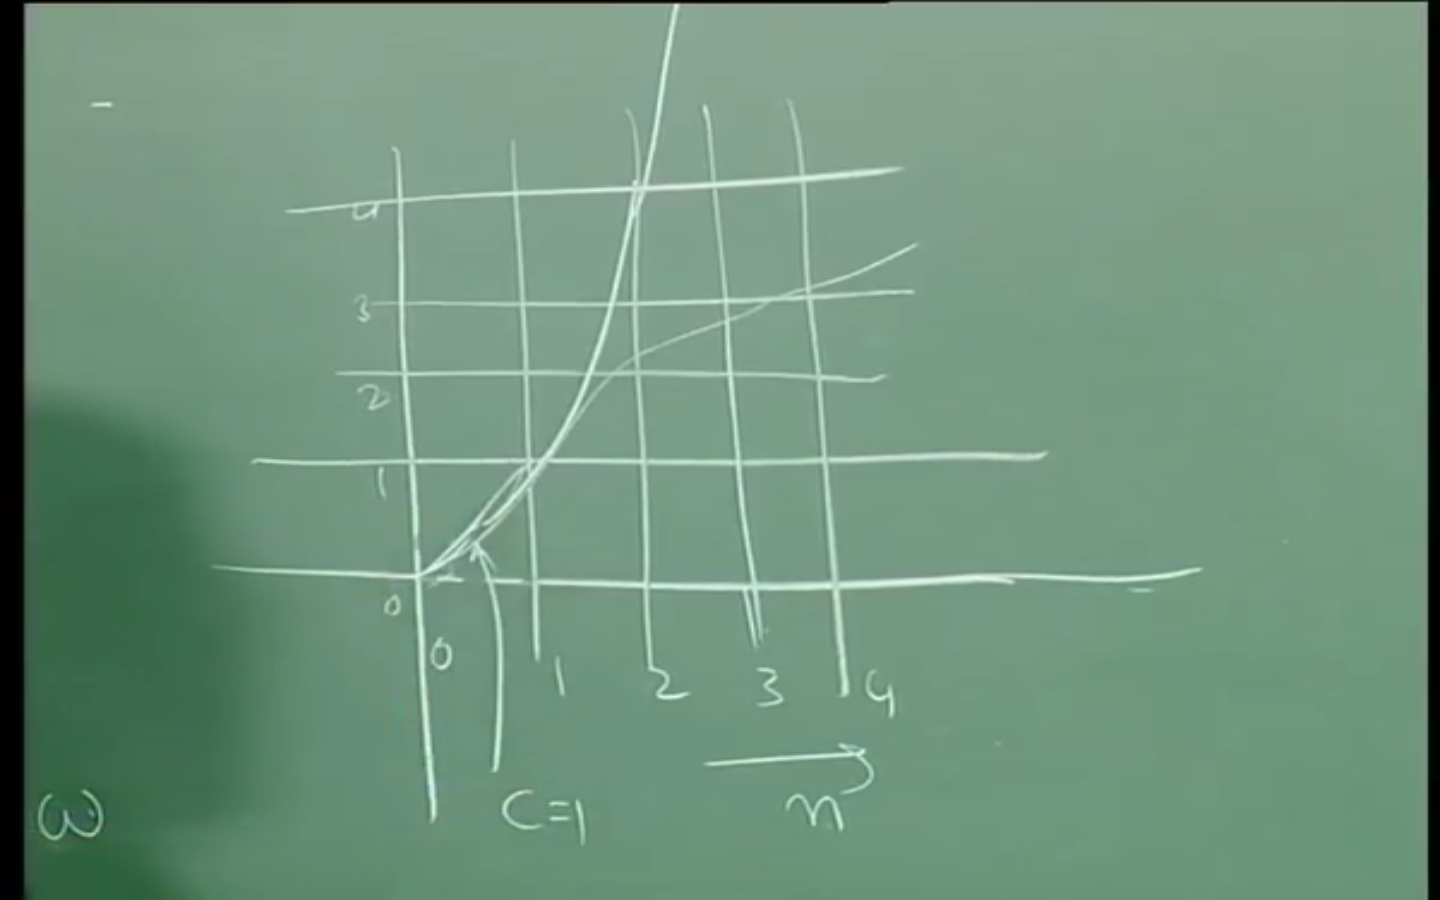 4
3
2
1
0
0 1 2 3 4
ω C=1 n